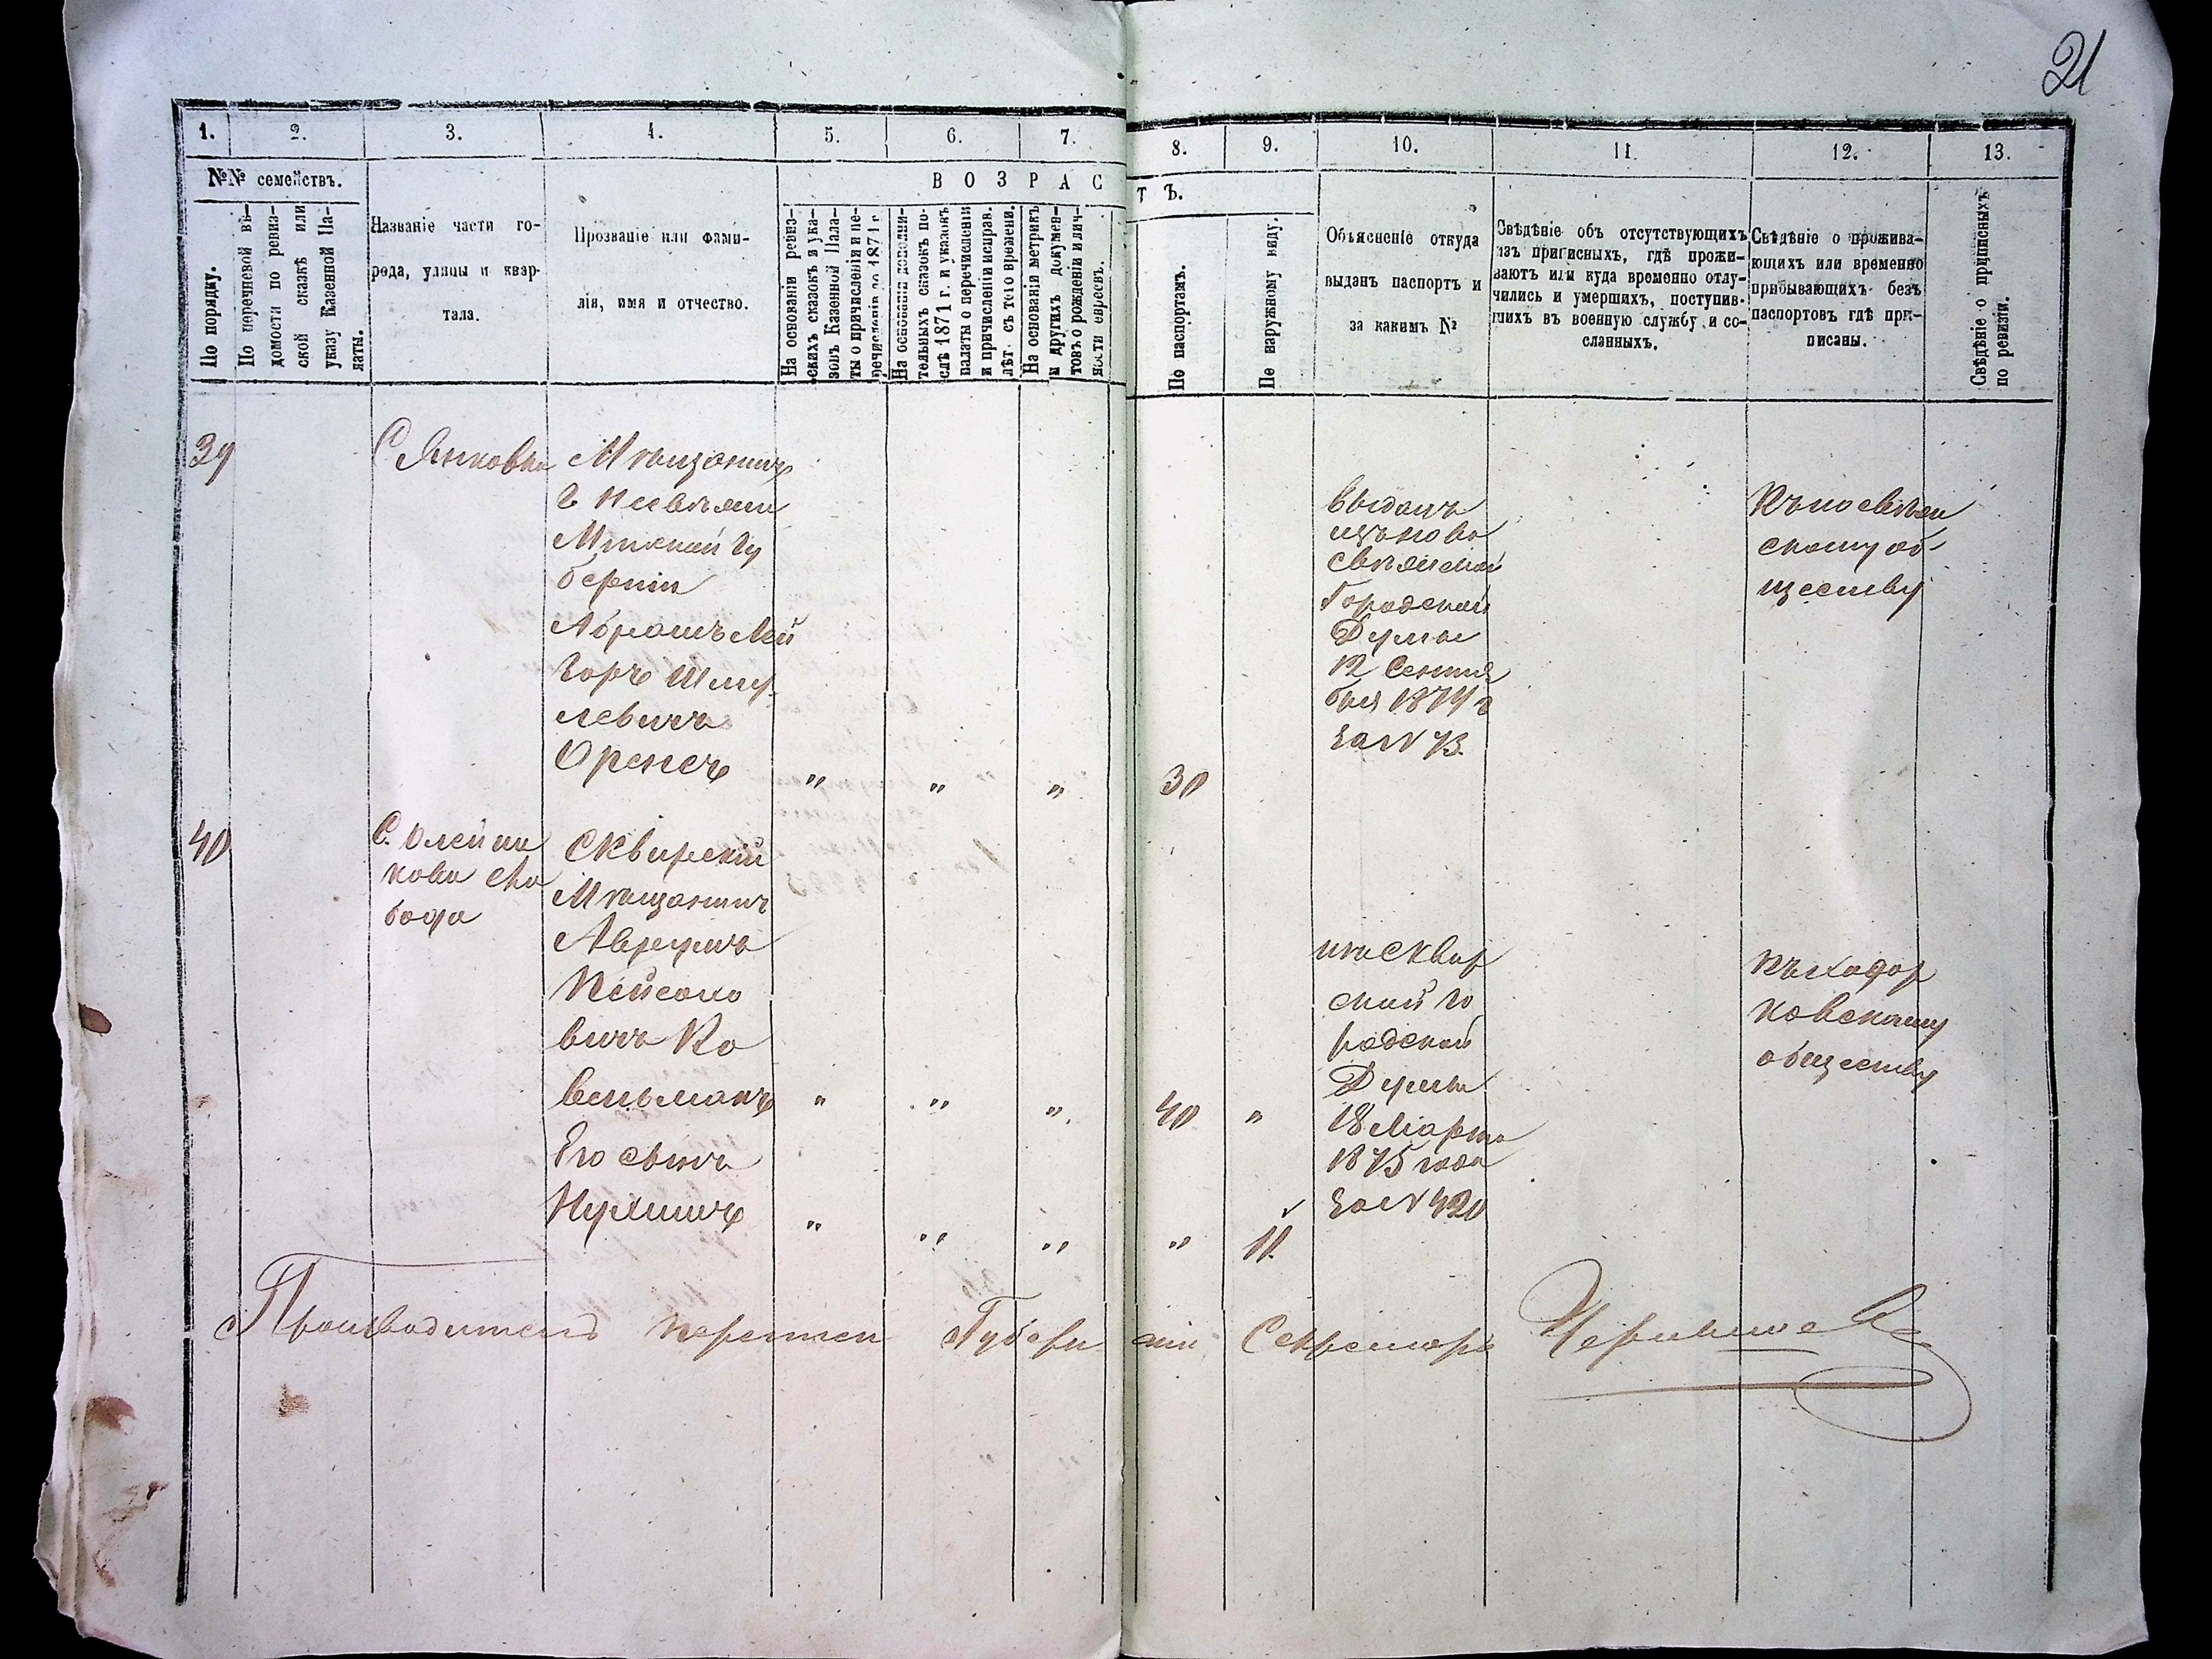 21
1. 2. 3. 4. 5. 6. 7. 8. 9. 10. 11. 12. 13.
№№ семействъ.
По порядку.
По перечневой вѣ-
домости по ревиз-
ской сказкѣ или
указу Казенной Па-
латы.
Названіе части го-
рода, улицы и квар-
тала.
Прозваніе или фами-
лія, имя и отчество.
ВОЗРАС
ТЪ.
На основаніи ревиз-
скихъ сказокъ и ука-
зовъ Казенной Пала-
ты о причисленіи и пе-
речисленіи до 1871 г.
На основаніи дополни-
тельныхъ сказокъ по-
слѣ 1871 г. и указовъ
палаты о перечисленіи
и причисленіи исправ.
лѣт. съ того времени.
На основаніи метрикъ
и другихъ докумен-
товъ о рожденіи и лич-
ности евреевъ.
По паспортамъ.
По наружному виду.
Объясненіе откуда
выданъ паспортъ и
за какимъ №
Свѣдѣніе объ отсутствующихъ
изъ приписныхъ, гдѣ прожи-
ваютъ или куда временно отлу-
чились и умершихъ, поступив-
шихъ въ военную службу и со-
сланныхъ.
Свѣдѣніе о прожива-
ющихъ или временно
прибывающихъ безъ
паспортовъ гдѣ при-
писаны.
Свѣдѣніе о приписныхъ
по ревизіи.
39
С. Янковка
Мѣщанинъ
Минской Гу
берніи
Абрамъ Лей
Шму
левичъ
" " " 30
Выданъ
изъ ново
свѣянской
Городской
Думы
12 Сентя
бря 1874 г
За № 73.
скому об-
ществу
40
С. Олейни
кова Сло
бода
Сквирскій
Мѣщанинъ
Аврумъ
Кейсоно
вичъ Ко
вельманъ
" " " 40 "
Его сынъ
Нухимъ
" " " " 11.
изъ Сквир
ской го
родской
Думы
18 Марта
1875 года
За № 420
Къ ходор
ковскому
обществу
Производитель переписи Губерн скій Секретарь